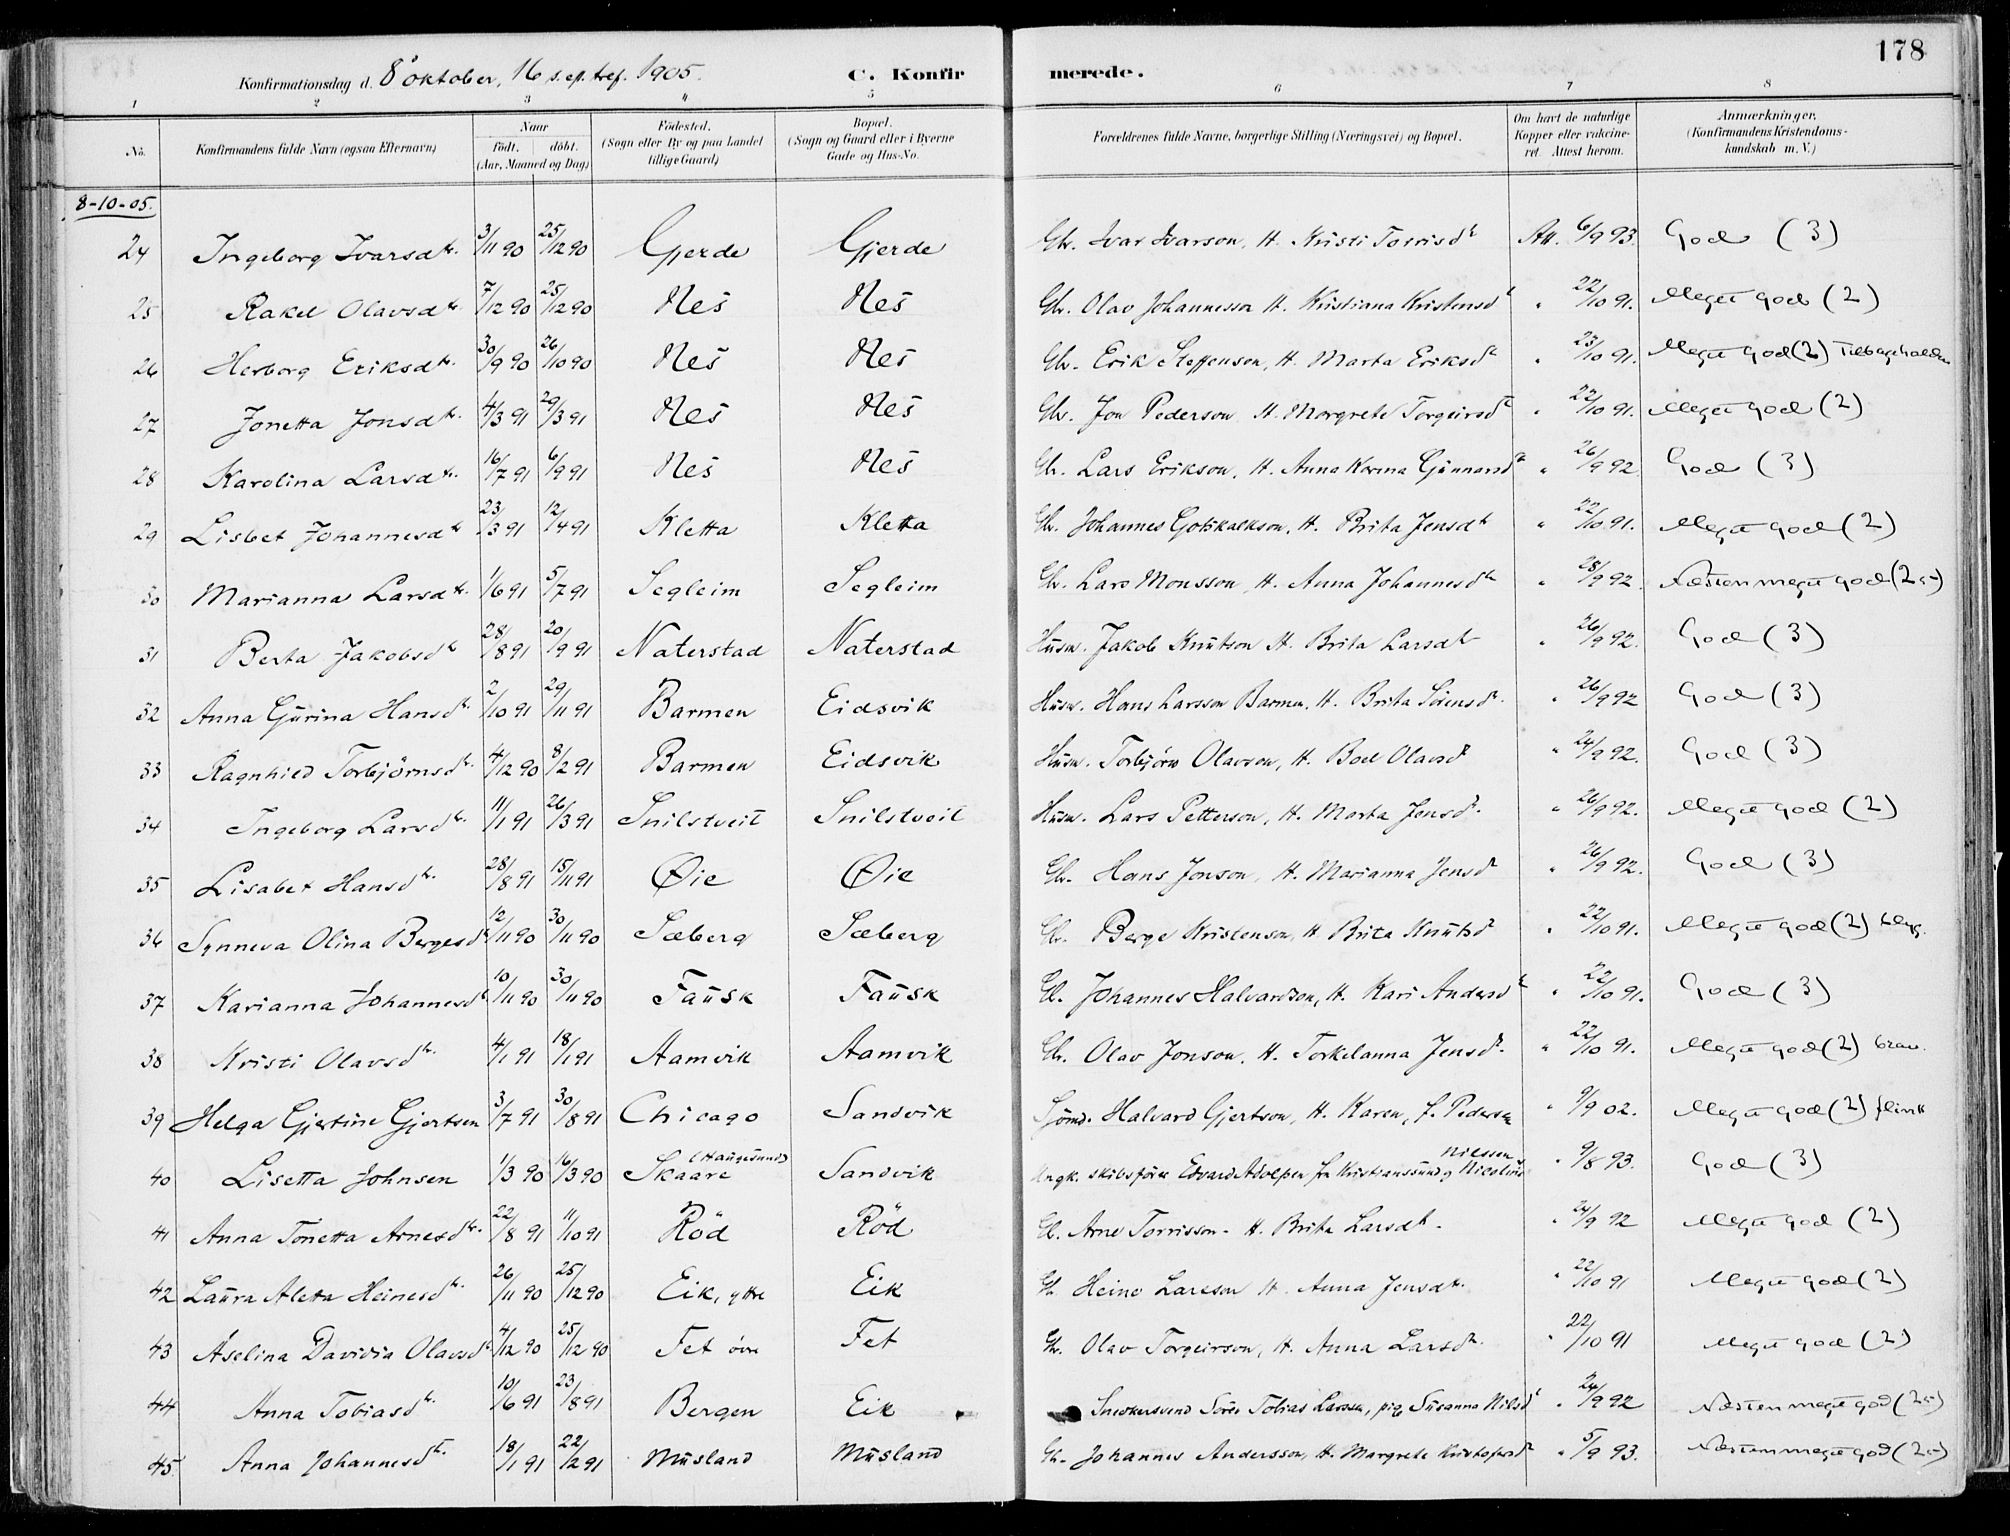 178
Konfirmationsdag d. 8 oktober, 16 s. ep. tref. 1905. C. Konfirmerede.
1 2 3 4 5 6 7 8
No. Konfirmandens fulde Navn (ogsaa Efternavn) Naar født. døbt. (Aar, Maaned og Dag) Fødested. (Sogn eller By og paa Landet tillige Gaard) Bopæl. (Sogn og Gaard eller i Byerne Gade og Hus-No. Forældrenes fulde Navne, borgerlige Stilling (Næringsvei) og Bopæl. Om havt de naturlige Kopper eller vakcineret. Attest herom. Anmærkninger, (Konfirmandens Kristendomskundskab m. V.)
8-10-05.
24 Ingeborg Ivarsdtr. 3/11 90 25/12 90 Gjerde Gjerde Gbr. Ivar Ivarson, H. Kristi Torrisdr Att. 6/9 93. God (3)
25 Rakel Olavsdtr. 7/12 90 25/12 90 Nes Nes Gbr. Olav Johannesson H. Kristiana Kristensdr " 22/10 91. Meget god (2)
26 Herborg Eriksdtr. 30/9 90 26/10 90 Nes Nes Gbr. Erik Steffenson, H. Marta Eriksdr " 23/10 91. Meget god (2) Tilbageholden
27 Jonetta Jonsdtr. 4/3 91 29/3 91 Nes Nes Gbr. Jon Pederson H. Margrete Torgeirsdr " 22/10 91. Meget god (2)
28 Karolina Larsdtr. 16/7 91 6/9 91 Nes Nes Gbr. Lars Erikson, H. Anna Korina Gunnarsdr " 26/9 92 God (3)
29 Lisbet Johannesdr 23/3 91 12/4 91 Kletta Kletta Gbr. Johannes Gotskalkson, H. Brita Jensdtr " 22/10 91. Meget god (2)
30 Marianna Larsdtr. 1/6 91 5/7 91 Segleim Segleim Gbr. Lars Monsson, H. Anna Johannesdr " 28/9 92. Næsten meget god (2 à -)
31 Berta Jakobsdr 28/8 91 20/9 91 Naterstad Naterstad Husm. Jakob Knutson H. Brita Larsdtr " 26/9 92. God (3)
32 Anna Gurina Hansdr. 2/10 91 29/11 91 Barmen Eidsvik Husm. Hans Larsson Barmen, H. Brita Sörensdr. " 26/9 92 God (3)
33 Ragnhild Torbjörnsdr. 4/12 90 8/2 91 Barmen Eidsvik Husm. Torbjørn Olavson, H. Boel Olavsdr " 24/9 92. God (3)
34 Ingeborg Larsdr. 11/1 91 26/3 91 Snilstveit Snilstveit Husm. Lars Petterson, H. Marta Jensdr. " 26/9 92. Meget god (2)
35 Lisabet Hansdr. 28/8 91 15/11 91 Øie Øie Gbr. Hans Jonson, H. Marianna Jensdr " 26/9 92. God (3)
36 Synneva Olina Bergesdr 12/11 90 30/11 90 Sæberg Sæberg Gbr. Berge Kristenson, H. Brita Knutsdr " 22/10 91. Meget god (2) blyg.
37 Karianna Johannesdr 10/11 90 30/11 90 Fausk Fausk Gbr. Johannes Halvardson, H. Kari Andersdr " 22/10 91. God (3)
38 Kristi Olavsdr. 4/1 91 18/1 91 Aamvik Aamvik Gbr. Olav Jonson, H. Torkelanna Jensdr. " 22/10 91. Meget god (2) brav.
39 Helga Gjertine Gjertsen 3/7 91 30/8 91 Chicago Sandvik Sjömd. Halvard Gjertson, H. Karen, f. Pedersen " 9/9 02. Meget god (2) flink
40 Lisetta Johnsen 1/3 90 16/3 90 Skaare (Haugesund) Sandvik Ungk. skibsfører Edvard Adolfsen fra Kristianssund og Nicoline Nilssen " 9/8 93. God (3)
41 Anna Tonetta Arnesdr. 22/8 91 11/10 91 Röd Röd Gb. Arne Torrisson - H. Brita Larsdtr. " 24/9 92 Meget god (2)
42 Laura Aletta Heinesdr. 26/11 90 25/12 90 Eik, ytre Eik Gb Heine Larsson H. Anna Jensdtr. " 22/10 91 Meget god (2)
43 Åselina Davidia Olavsdr 4/12 90 25/12 90 Fet övre Fet Gbr. Olav Torgeirson, H. Anna Larsdr. " 22/10 91 Meget god (2)
44 Anna Tobiasdr. 10/6 91 23/8 91 Bergen Eik Snedkersvend Sören Tobias Larsen, pige Susanna Nilsdr " 24/9 92 Næsten meget god (2 à -)
45. Anna Johannesdr. 18/1 91 22/2 91 Musland Musland Gbr. Johannes Andersson, H. Margrete Kristofersdr " 5/9 93. Næsten meget god (2 à -)